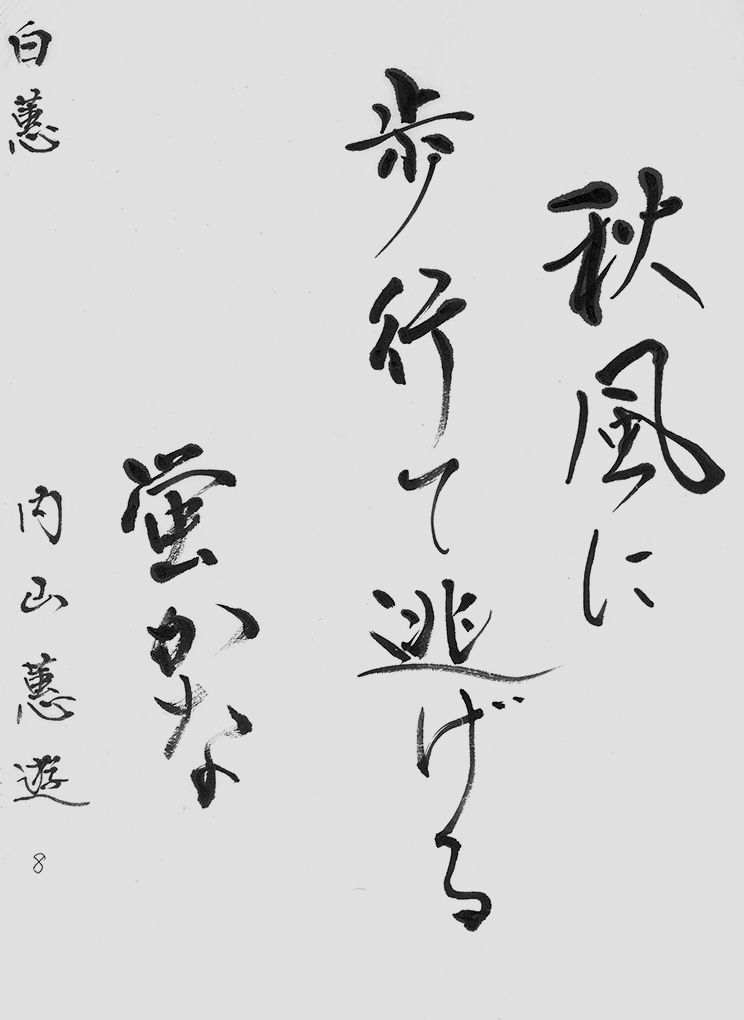 秋風に
歩行て逃げる
蛍かな
白蕙
内山蕙遊
8